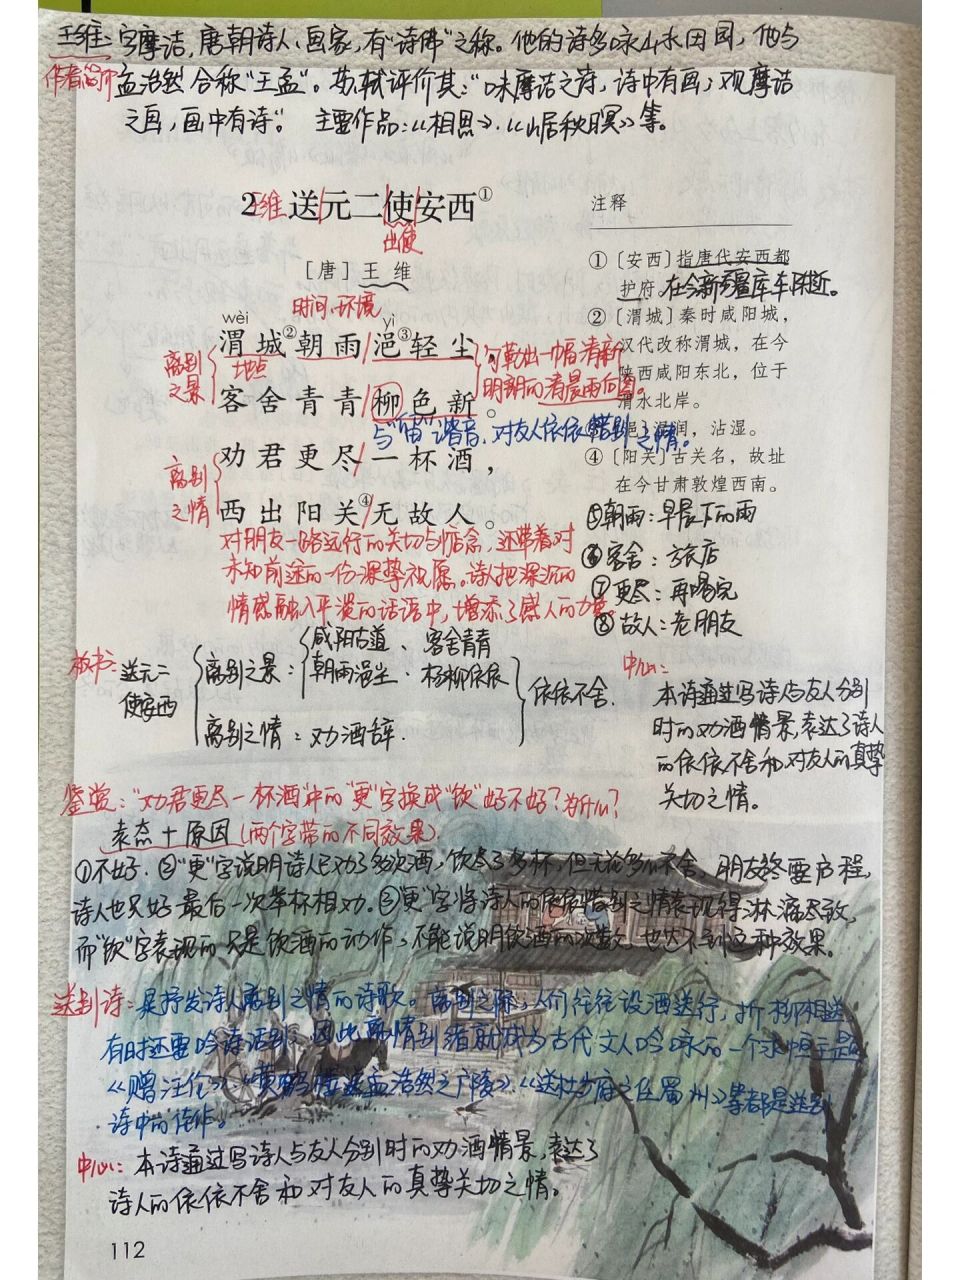 王维：字摩诘，唐朝诗人、画家，有“诗佛”之称。他的诗多咏山水田园，他与
作者简介
孟浩然合称“王孟”。苏轼评价其：“味摩诘之诗，诗中有画；观摩诘
之画，画中有诗”。 主要作品：《相思》、《山居秋暝》等。
2 王维 送/元二/使/安西①
出使
[唐]王 维
时间、环境
wèi yì
渭城②朝雨/浥③轻尘，
地点
离别之景
客舍青青/柳色新。
勾勒出一幅清新
明朗的清晨雨后图。
与“留”谐音，对友人依依惜别之情。
劝君更尽/一杯酒，
离别之情
西出阳关④/无故人。
对朋友一路远行的关切与惦念，还带着对
未知前途的一份深挚祝愿。诗人把深沉的
情感融入平淡的话语中，增添了感人的力量。
注释
①〔安西〕指唐代安西都
护府。在今新疆库车附近。
②〔渭城〕秦时咸阳城，
汉代改称渭城，在今
陕西咸阳东北，位于
渭水北岸。
润，沾湿。
④〔阳关〕古关名，故址
在今甘肃敦煌西南。
⑤朝雨：早晨下的雨
⑥客舍：旅店
⑦更尽：再喝完
⑧故人：老朋友
板书：
送元二
使安西
离别之景：
咸阳古道、客舍青青
朝雨浥尘、杨柳依依
离别之情：劝酒辞.
依依不舍.
中心：
本诗通过写诗人与友人分别
时的劝酒情景，表达了诗人
的依依不舍和对友人的真挚
关切之情。
鉴赏：“劝君更尽一杯酒”中的“更”字换成“饮”好不好？为什么？
表态＋原因（两个字带的不同效果）.
①不好. ②“更”字说明诗人已劝了多次酒，饮尽了多杯，但无论多么不舍，朋友终要启程，
诗人也只好最后一次举杯相劝.③“更”字将诗人的依依惜别之情表现得淋漓尽致，
而“饮”字表现的只是饮酒的动作，不能说明饮酒的次数，也达不到这种效果。
送别诗：是抒发诗人离别之情的诗歌。离别之际，人们往往设酒送行，折柳相送，
有时还要吟诗话别，因此离情别绪就成为古代文人吟咏的一个永恒主题
《赠汪伦》、《黄鹤楼送孟浩然之广陵》、《送杜少府之任蜀州》等都是送别
诗中的佳作。
中心：本诗通过写诗人与友人分别时的劝酒情景，表达了
诗人的依依不舍和对友人的真挚关切之情。
112